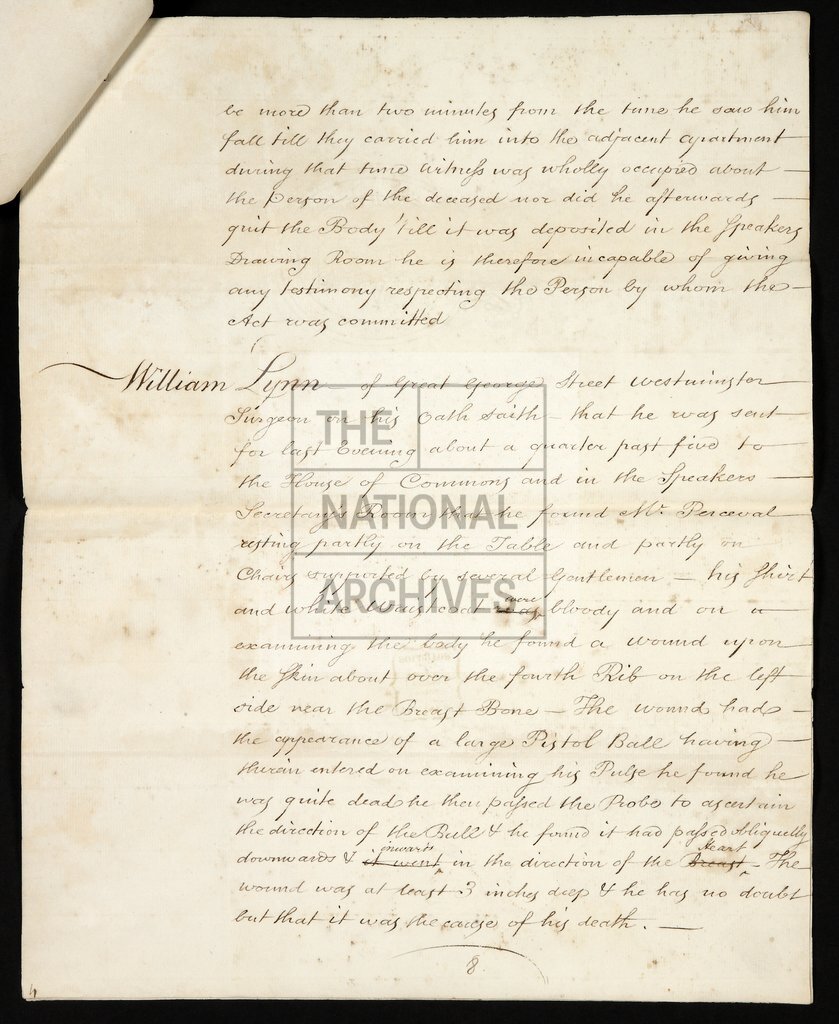 be more than two minutes from the time he saw him
fall till they carried him into the adjacent apartment
during that time Witness was wholly occupied about
the Person of the deceased nor did he afterwards
quit the Body 'till it was deposited in the Speakers
Drawing Room he is therefore incapable of giving
any testimony respecting the Person by whom the
Act was committed
William Lynn of Great George Street Westminster
Surgeon on his Oath saith that he was sent
for last Evening about a quarter past five to
the House of Commons and in the Speakers
Secretary's Room that he found Mr. Perceval
resting partly on the Table and partly on
Chairs supported by several Gentlemen – his Shirt
and white Waistcoat were was bloody and on
examining the body he found a wound upon
the Skin about over the fourth Rib on the left
side near the Breast Bone – The wound had
the appearance of a large Pistol Ball having
therein entered on examining his Pulse he found he
was quite dead he then passed the Probe to ascertain
the direction of the Ball & he found it had passed obliquely
downwards & inwards it went in the direction of the Heart Breast – The
wound was at least 3 inches deep & he has no doubt
but that it was the cause of his death. –
8
THE
NATIONAL
ARCHIVES